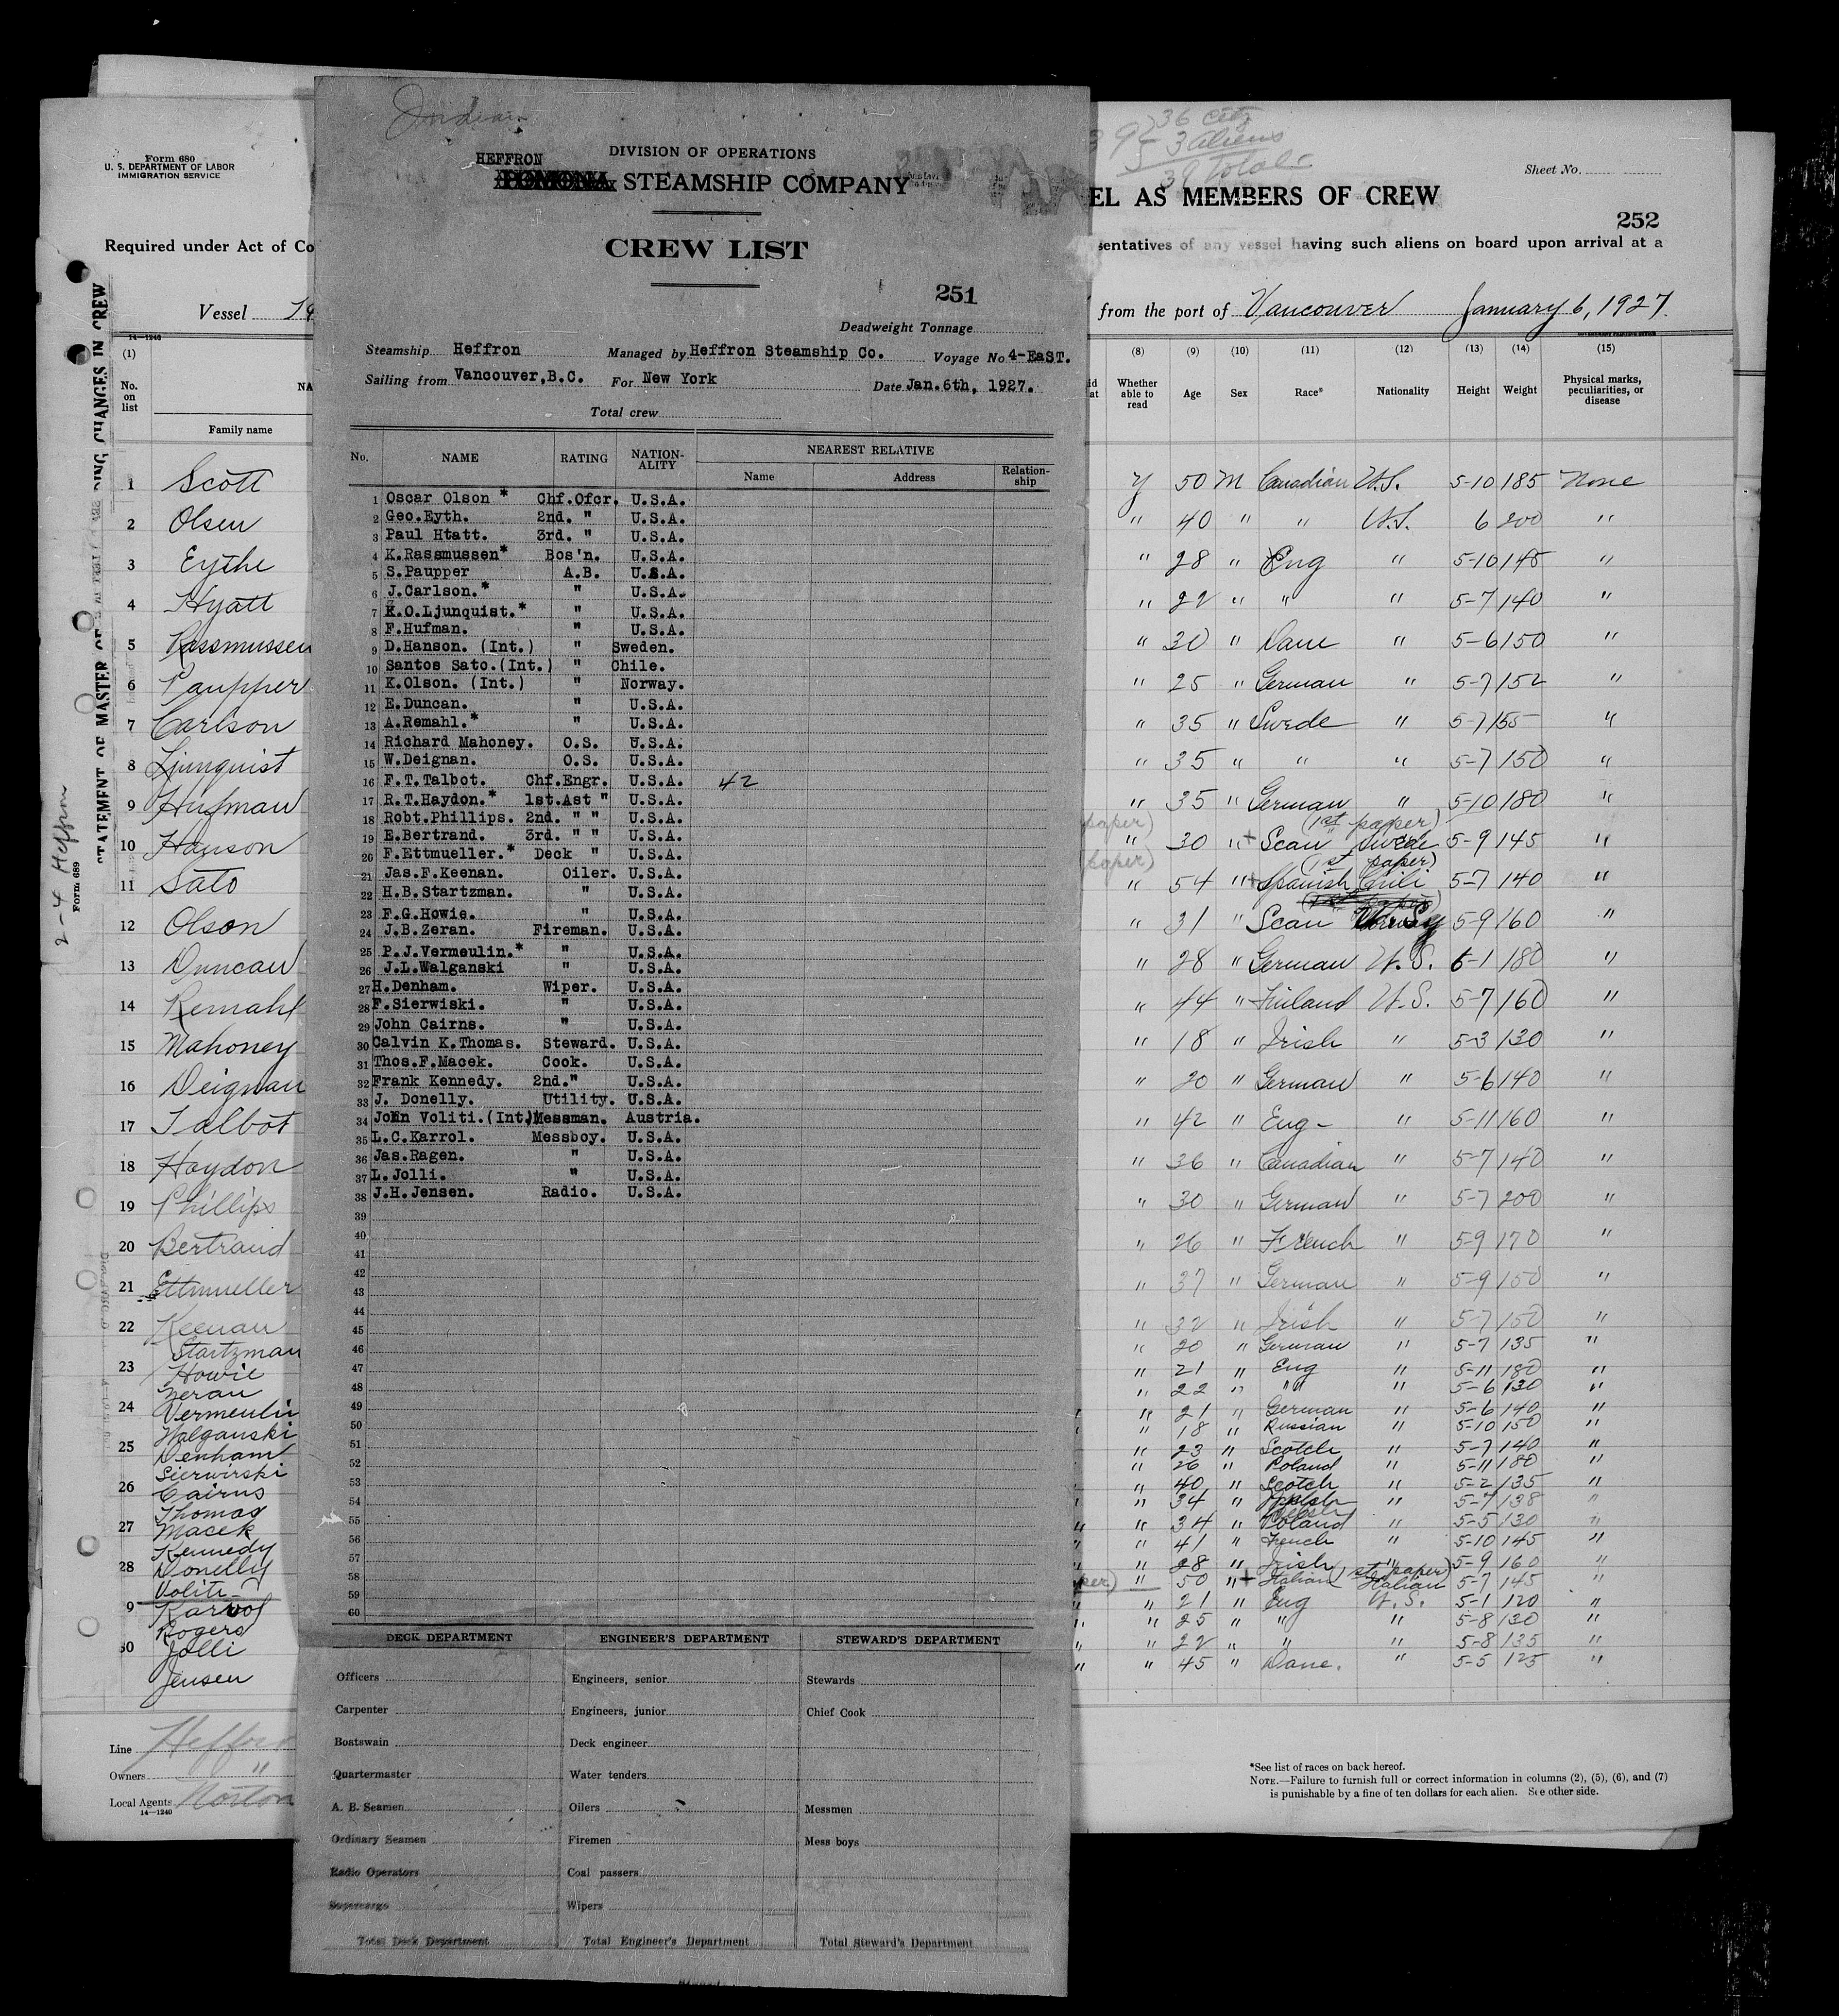 Form 680
U. S. DEPARTMENT OF LABOR
IMMIGRATION SERVICE
Required under Act of Co
Vessel
14—1240
(1)
No. on list
NA
Family name
1 Scott
2 Olsen
3 Eythe
4 Hyatt
5 Rassmussen
6 Paupper
7 Carlson
8 Ljunquist
9 Hufman
10 Hanson
11 Sato
12 Olson
13 Duncan
14 Remahl
15 Mahoney
16 Deignan
17 Talbot
18 Haydon
19 Phillips
20 Bertrand
21 Ettmueller
22 Keenan
Startzman
23 Howie
Zeran
24 Vermeulin
Walganski
25 Denham
Sierwirski
26 Cairns
Thomas
27 Macek
Kennedy
28 Donelly
Voliti
9 Karrol
Rogers
30 Jolli
Jensen
Line
Owners "
Local Agents Norton
14—1240
2-4 Heffron
Form 689
STATEMENT OF MASTER OF
DING CHANGES IN CREW
Indian
DIVISION OF OPERATIONS
HEFFRON
POMONA STEAMSHIP COMPANY
CREW LIST
251
Deadweight Tonnage
Steamship Heffron Managed by Heffron Steamship Co. Voyage No 4-EaST.
Sailing from Vancouver,B.C. For New York Date Jan.6th, 1927.
Total crew
No. NAME RATING NATION-ALITY NEAREST RELATIVE
Name Address Relation-ship
1 Oscar Olson * Chf.Ofcr. U.S.A.
2 Geo.Eyth. 2nd. " U.S.A.
3 Paul Htatt. 3rd. " U.S.A.
4 K.Rassmussen* Bos'n. U.S.A.
5 S.Paupper A.B. U.S.A.
6 J.Carlson.* " U.S.A.
7 K.O.Ljunquist.* " U.S.A.
8 F.Hufman. " U.S.A.
9 D.Hanson. (Int.) " Sweden.
10 Santos Sato.(Int.) " Chile.
11 K.Olson. (Int.) " Norway.
12 E.Duncan. " U.S.A.
13 A.Remahl.* " U.S.A.
14 Richard Mahoney. O.S. U.S.A.
15 W.Deignan. O.S. U.S.A.
16 F.T.Talbot. Chf.Engr. U.S.A. 42
17 R.T.Haydon.* 1st.Ast " U.S.A.
18 Robt.Phillips. 2nd. " " U.S.A.
19 E.Bertrand. 3rd. " " U.S.A.
20 F.Ettmueller.* Deck " U.S.A.
21 Jas.F.Keenan. Oiler. U.S.A.
22 H.B.Startzman. " U.S.A.
23 F.G.Howie. " U.S.A.
24 J.B.Zeran. Fireman. U.S.A.
25 P.J.Vermeulin.* " U.S.A.
26 J.L.Walganski " U.S.A.
27 H.Denham. Wiper. U.S.A.
28 F.Sierwiski. " U.S.A.
29 John Cairns. " U.S.A.
30 Calvin K.Thomas. Steward. U.S.A.
31 Thos.F.Macek. Cook. U.S.A.
32 Frank Kennedy. 2nd." U.S.A.
33 J. Donelly. Utility. U.S.A.
34 John Voliti.(Int.) Messman. Austria.
35 L.C.Karrol. Messboy. U.S.A.
36 Jas.Ragen. " U.S.A.
37 L.Jolli. " U.S.A.
38 J.H.Jensen. Radio. U.S.A.
39
40
41
42
43
44
45
46
47
48
49
50
51
52
53
54
55
56
57
58
59
60
DECK DEPARTMENT ENGINEER'S DEPARTMENT STEWARD'S DEPARTMENT
Officers Engineers, senior Stewards
Carpenter Engineers, junior Chief Cook
Boatswain Deck engineer
Quartermaster Water tenders
A. B. Seamen Oilers Messmen
Ordinary Seamen Firemen Mess boys
Radio Operators Coal passers
Supercargo Wipers
Total Deck Department Total Engineer's Department Total Steward's Department
36 city
3 aliens
39 Total
Sheet No.
EL AS MEMBERS OF CREW
252
sentatives of any vessel having such aliens on board upon arrival at a
from the port of Vancouver January 6, 1927.
(8) (9) (10) (11) (12) (13) (14) (15)
Whether able to read Age Sex Race* Nationality Height Weight Physical marks, peculiarities, or disease
y 50 M Canadian U.S. 5-10 185 None
" 40 " " U.S. 6 200 "
" 28 " Eng " 5-10 145 "
" 22 " " " 5-7 140 "
" 30 " Dane " 5-6 150 "
" 25 " German " 5-7 152 "
" 35 " Swede " 5-7 155 "
" 35 " " " 5-7 150 "
" 35 " German " 5-10 180 "
paper) (1st paper)
" 30 " + Scan Swede 5-9 145 "
paper) (1st paper)
" 54 " + Spanish Chili 5-7 140 "
" 31 " Scan 5-9 160 "
" 28 " German U.S. 6-1 180 "
" 44 " Finland U.S. 5-7 160 "
" 18 " Irish " 5-3 130 "
" 20 " German " 5-6 140 "
" 42 " Eng- " 5-11 160 "
" 36 " Canadian " 5-7 140 "
" 30 " German " 5-7 200 "
" 26 " French " 5-9 170 "
" 37 " German " 5-9 150 "
" 32 " Irish " 5-7 150 "
" 20 " German " 5-7 135 "
" 21 " Eng " 5-11 180 "
" 22 " " " 5-6 130 "
" 21 " German " 5-6 140 "
" 18 " Russian " 5-10 150 "
" 23 " Scotch " 5-7 140 "
" 26 " Poland " 5-11 180 "
" 40 " Scotch " 5-2 135 "
" 34 " " 5-7 138 "
" 34 " Poland " 5-5 130 "
" 41 " French " 5-10 145 "
" 28 " Irish " 5-9 160 "
per) " 50 " + Italian (1st paper) Italian 5-7 145 "
" 21 " Eng U.S. 5-1 120 "
" 25 " " " 5-8 130 "
" 22 " " " 5-8 135 "
" 45 " Dane. " 5-5 125 "
*See list of races on back hereof.
NOTE.—Failure to furnish full or correct information in columns (2), (5), (6), and (7)
is punishable by a fine of ten dollars for each alien. See other side.